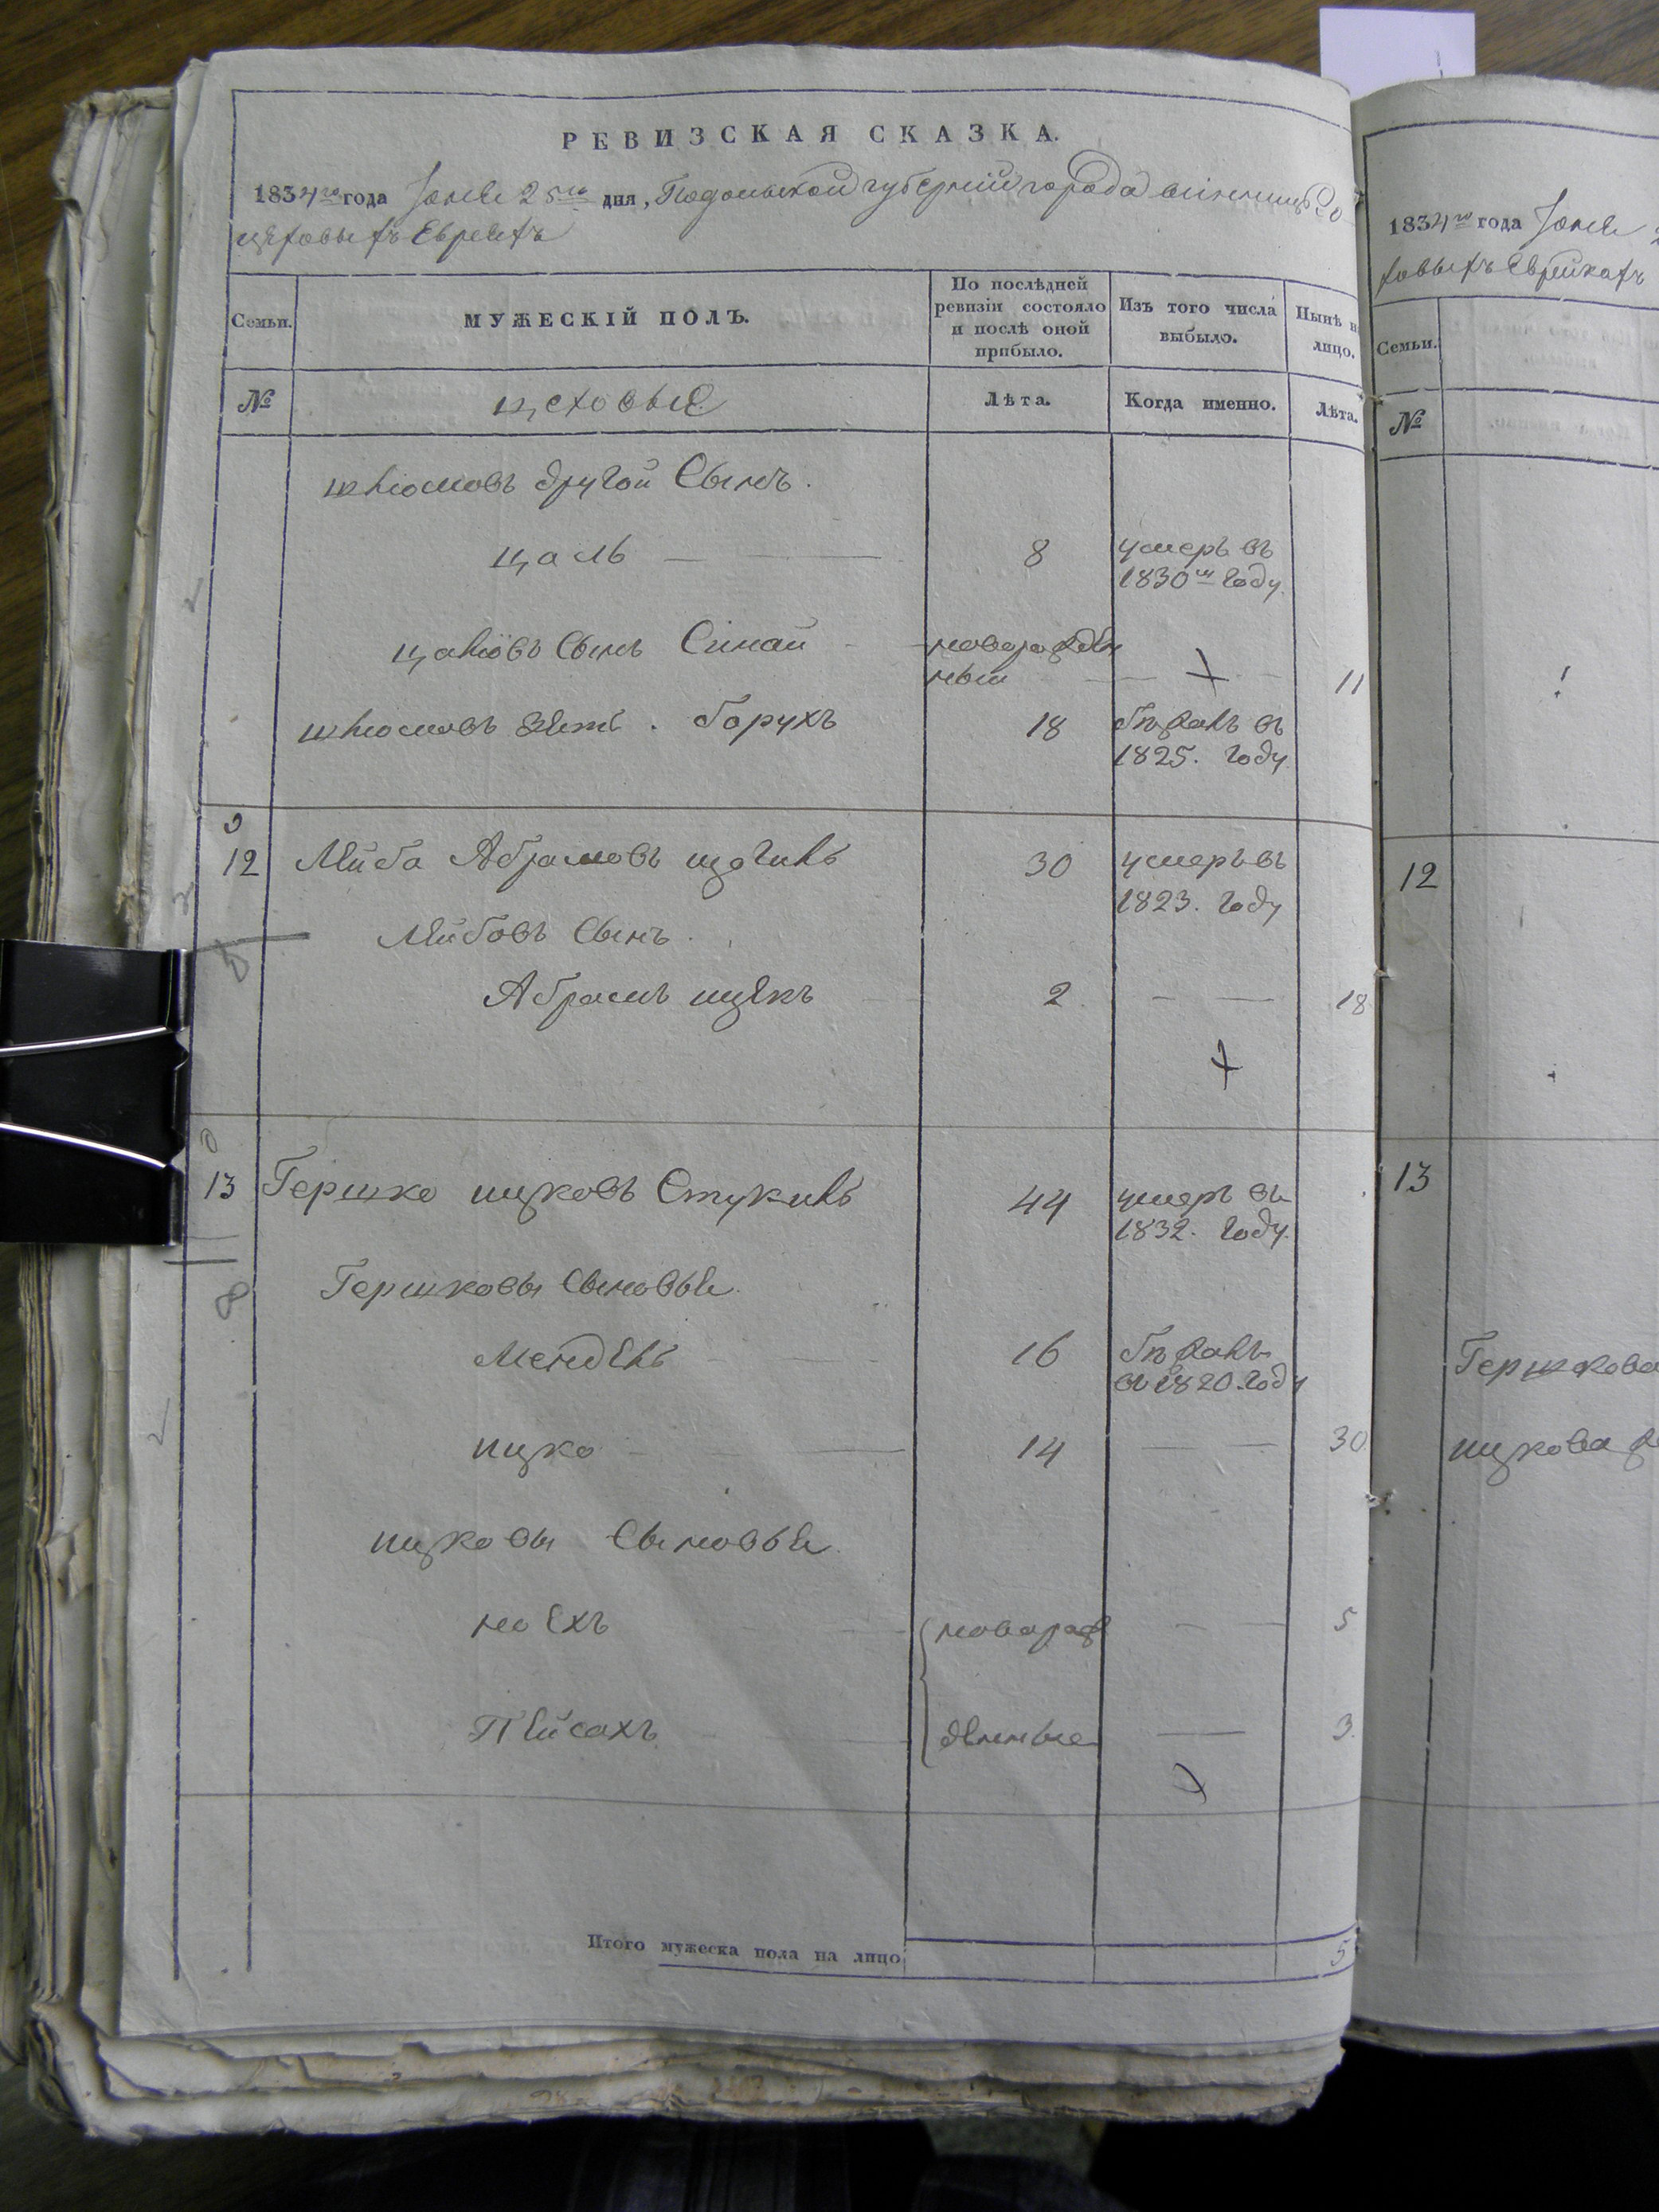 РЕВИЗСКАЯ СКАЗКА.
1834го года Іюня 25го дня, Подольской губерніи города Винницы о
цеховыхъ Евреяхъ
Семьи.
МУЖЕСКІЙ ПОЛЪ.
По послѣдней ревизіи состояло и послѣ оной прибыло.
Изъ того числа выбыло.
Нынѣ на лицо.
№
цеховые
Лѣта.
Когда именно.
Лѣта.
Шлюомовъ другой Сынъ.
Цаль 8 умеръ въ
1830м году
Цалювъ Сынъ Сінай новорожден
ный 11
Шлюомовъ зять. Борухъ 18 бѣжалъ въ
1825. году
12 Лейба Абрамовъ 30 умеръ въ
1823. году
Лейбовъ Сынъ.
Абрамъ ицекъ 2 18
13 Гершко ицковъ Стукиль 44 умеръ въ
1832. году.
8
Гершковы Сыновья
Мендель 16 бѣжалъ
въ 1820. году
ицко 14 30
ицковы Сыновья
ноехъ новорож 5
Пейсахъ денные 3
Итого мужеска пола на лицо 5
1834го года Іюня 2
ховыхъ Еврейкахъ
Семьи.
№
12
13
Гершкова
ицкова